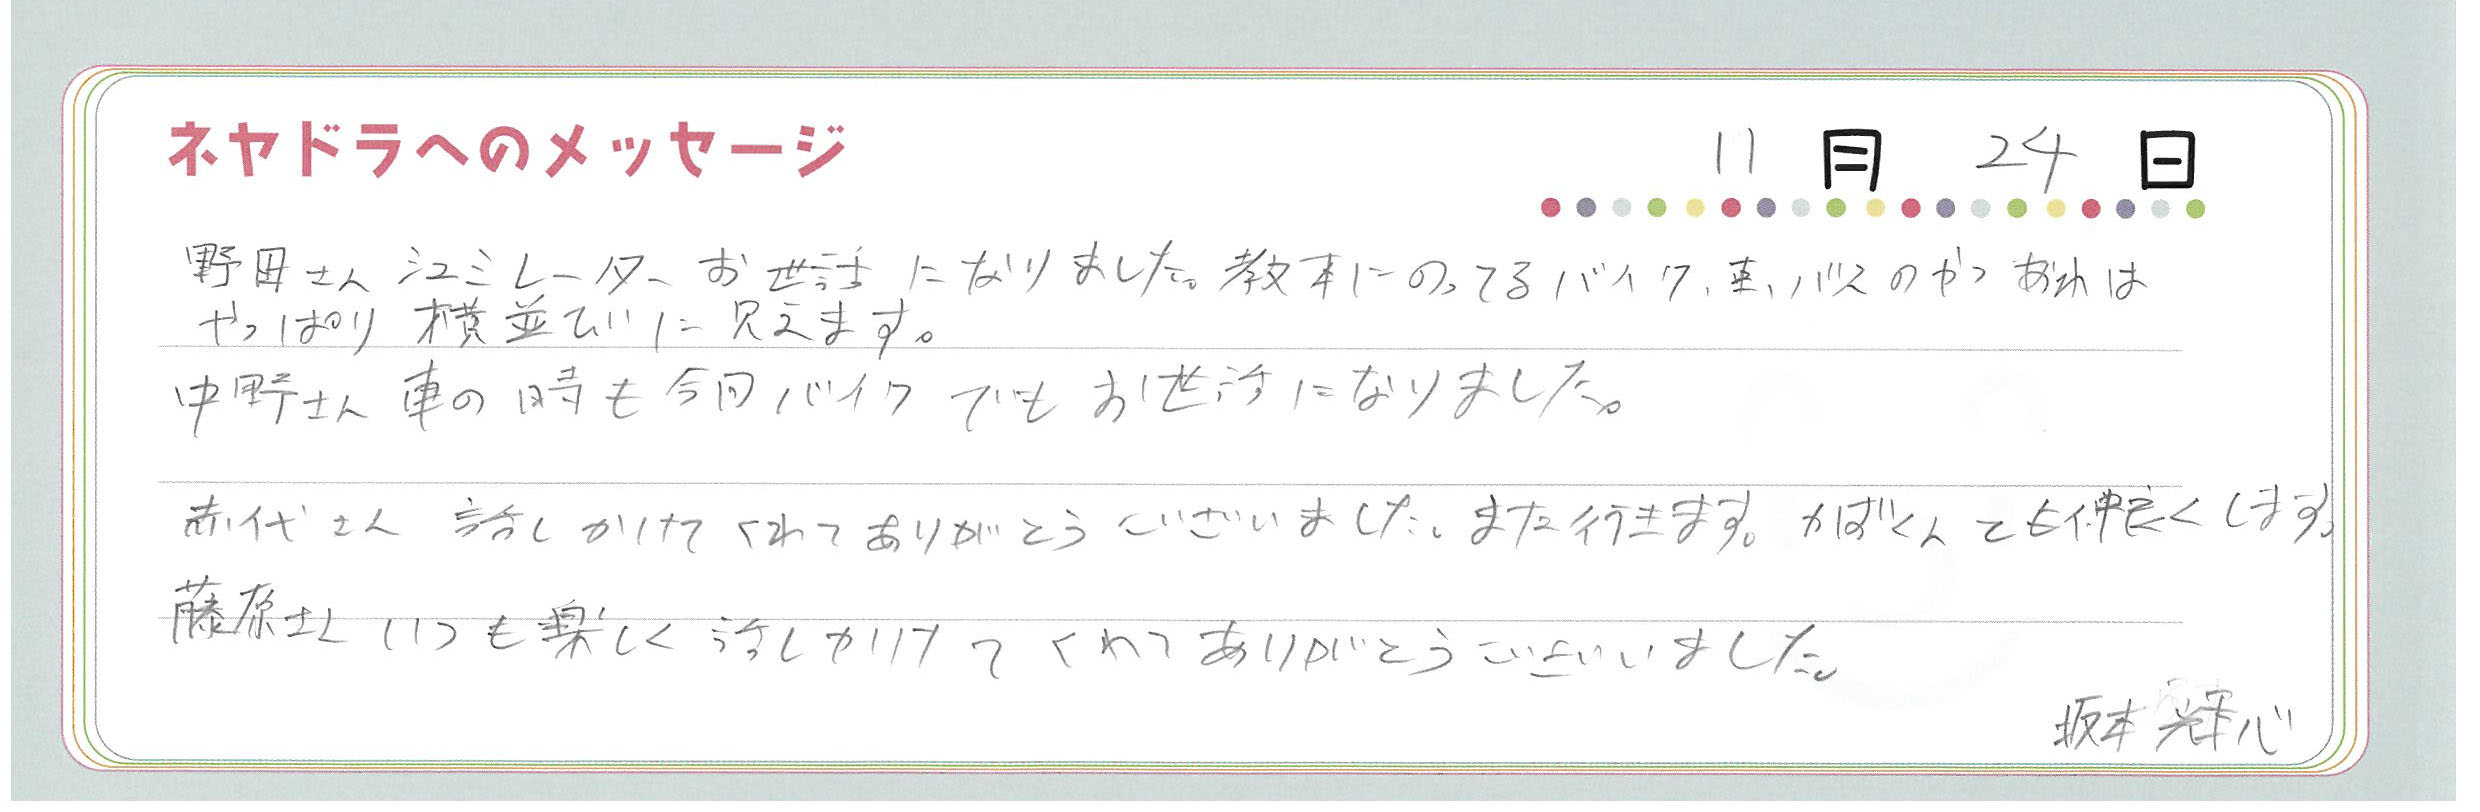 ネヤドラへのメッセージ
11月 24日
野田さん シュミレーター お世話になりました。教本にのってるバイク、車、バスのやつ あれは
やっぱり 横並びに見えます。
中野さん 車の時も今回バイクでもお世話になりました。
赤代さん 話しかけてくれてありがとうございました。また行きます。かばくんとも仲良くします。
藤原さん いつも楽しく話しかけてくれてありがとうございました。
坂本 輝心